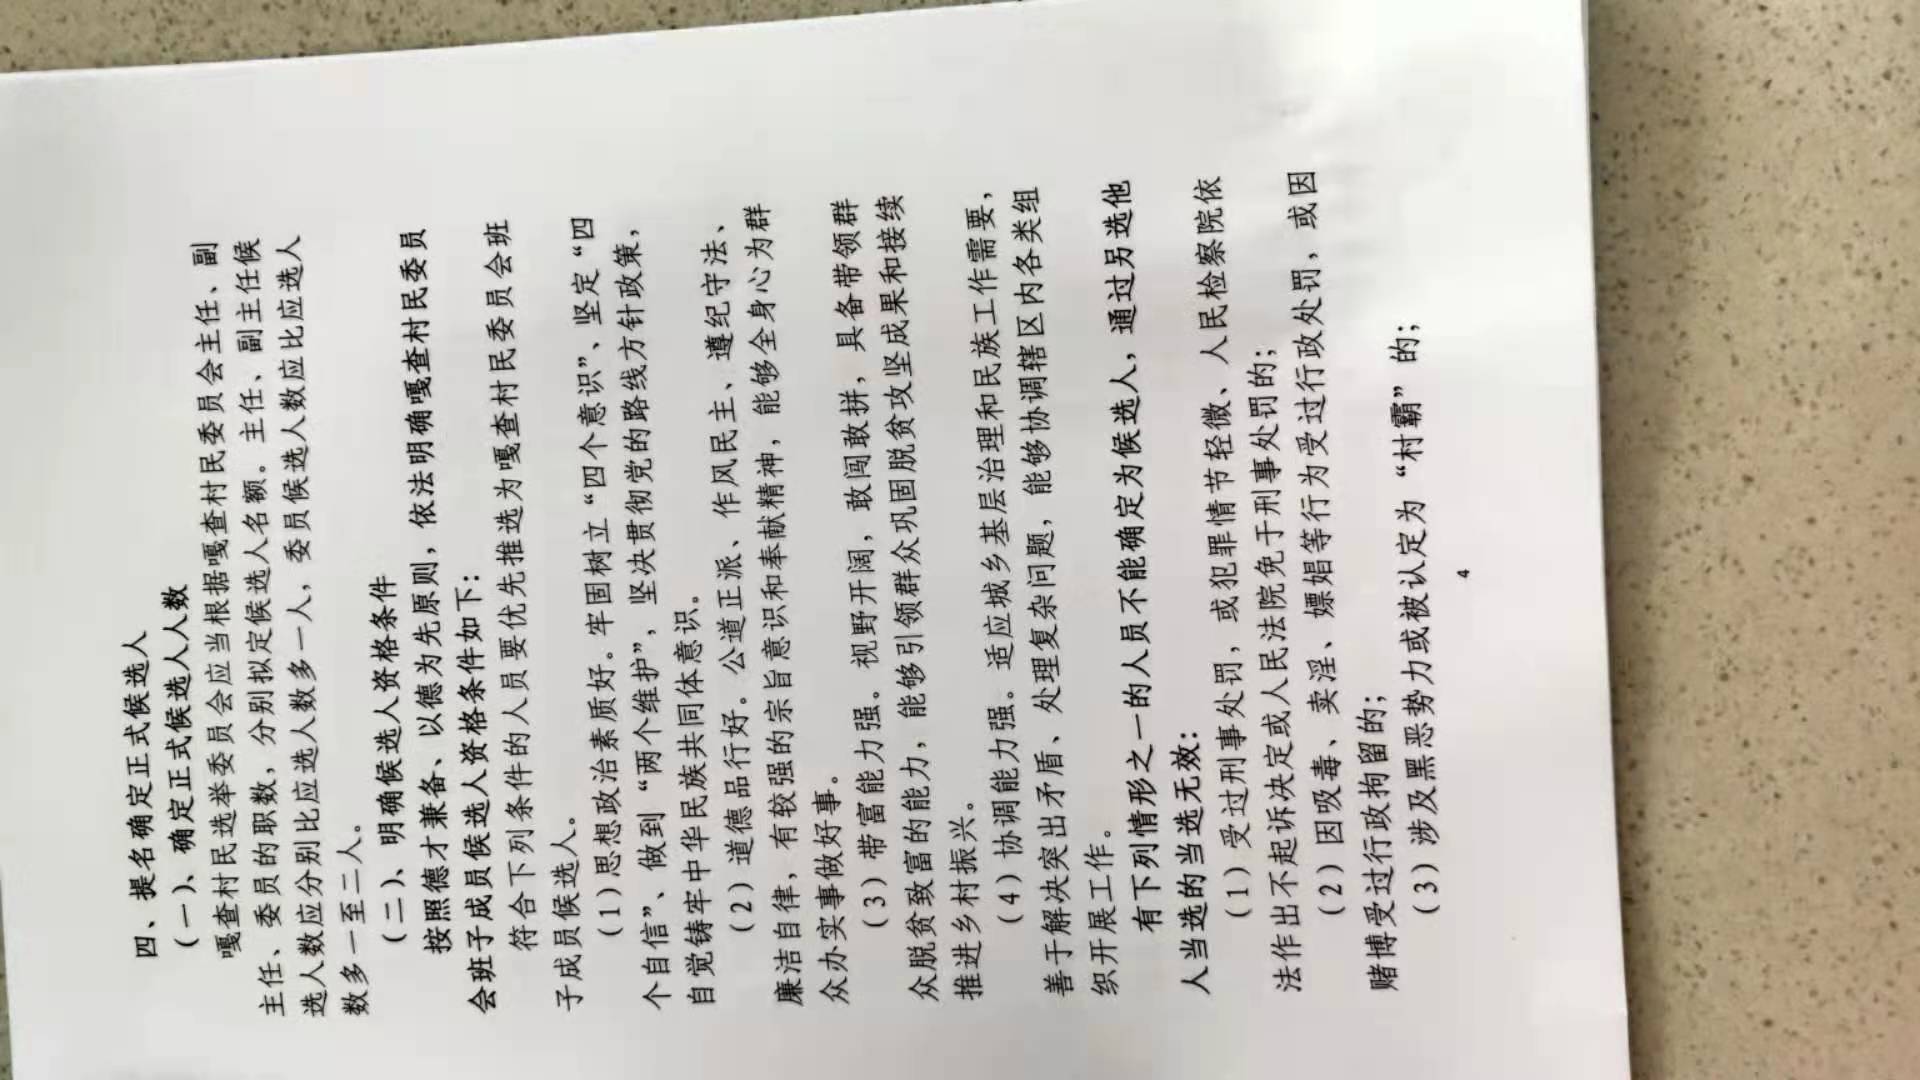 四、提名确定正式候选人
(一)、确定正式候选人人数
嘎查村民选举委员会应当根据嘎查村民委员会主任、副
主任、委员的职数，分别拟定候选人名额。主任、副主任候
选人数应分别比应选人数多一人，委员候选人数应比应选人
数多一至二人。
(二)、明确候选人资格条件
按照德才兼备、以德为先原则，依法明确嘎查村民委员
会班子成员候选人资格条件如下：
符合下列条件的人员要优先推选为嘎查村民委员会班
子成员候选人。
(1)思想政治素质好。牢固树立“四个意识”、坚定“四
个自信”、做到“两个维护”，坚决贯彻党的路线方针政策，
自觉铸牢中华民族共同体意识。
(2)道德品行好。公道正派、作风民主、遵纪守法、
廉洁自律，有较强的宗旨意识和奉献精神，能够全身心为群
众办实事做好事。
(3)带富能力强。视野开阔，敢闯敢拼，具备带领群
众脱贫致富的能力，能够引领群众巩固脱贫攻坚成果和接续
推进乡村振兴。
(4)协调能力强。适应城乡基层治理和民族工作需要，
善于解决突出矛盾、处理复杂问题，能够协调辖区内各类组
织开展工作。
有下列情形之一的人员不能确定为候选人，通过另选他
人当选的当选无效：
(1)受过刑事处罚，或犯罪情节轻微、人民检察院依
法作出不起诉决定或人民法院免于刑事处罚的；
(2)因吸毒、卖淫、嫖娼等行为受过行政处罚，或因
赌博受过行政拘留的；
(3)涉及黑恶势力或被认定为“村霸”的；
4